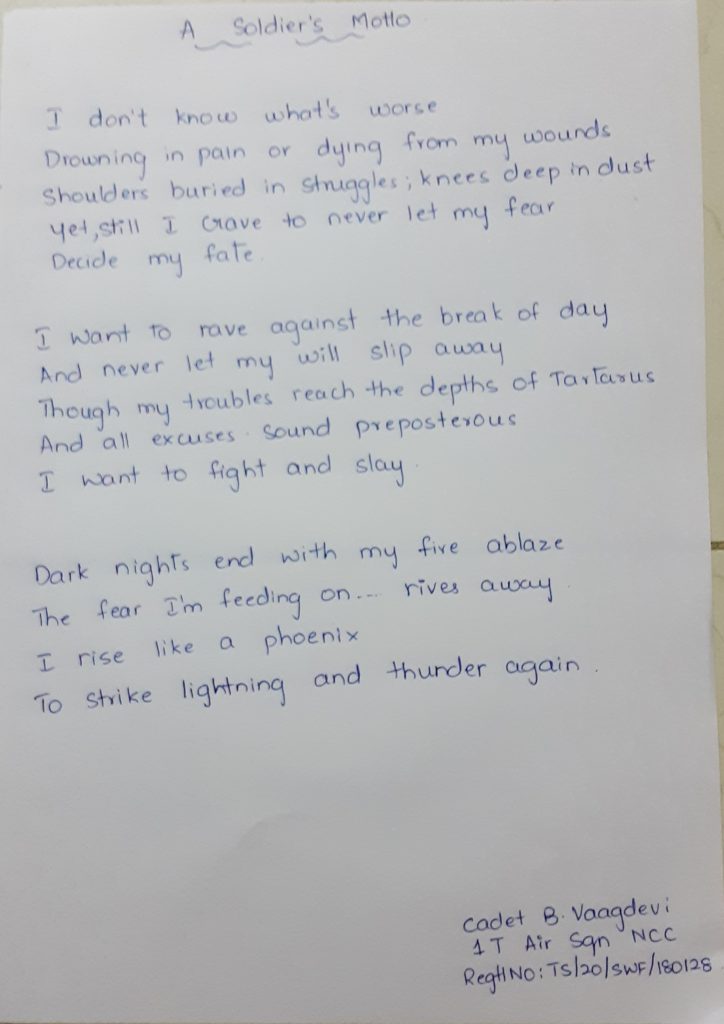 A Soldier's Motto
I don't know what's worse
Drowning in pain or dying from my wounds
Shoulders buried in struggles; knees deep in dust
Yet, still I crave to never let my fear
Decide my fate.
I want to rave against the break of day
And never let my will slip away
Though my troubles reach the depths of Tartarus
And all excuses sound preposterous
I want to fight and slay.
Dark nights end with my fire ablaze
The fear I'm feeding on.... rives away.
I rise like a phoenix
To strike lightning and thunder again.
Cadet B. Vaagdevi
1 T Air Sqn NCC
Regtl NO: TS/20/SWF/180128